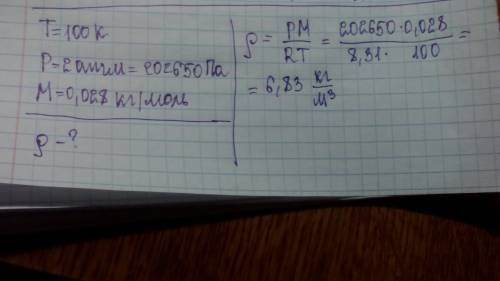 T=100К
P=2атм=202650Па
M=0,028 кг/моль
ρ-?
ρ = PM/RT = 202650·0,028/8,31· 100 =
= 6,83 кг/м³